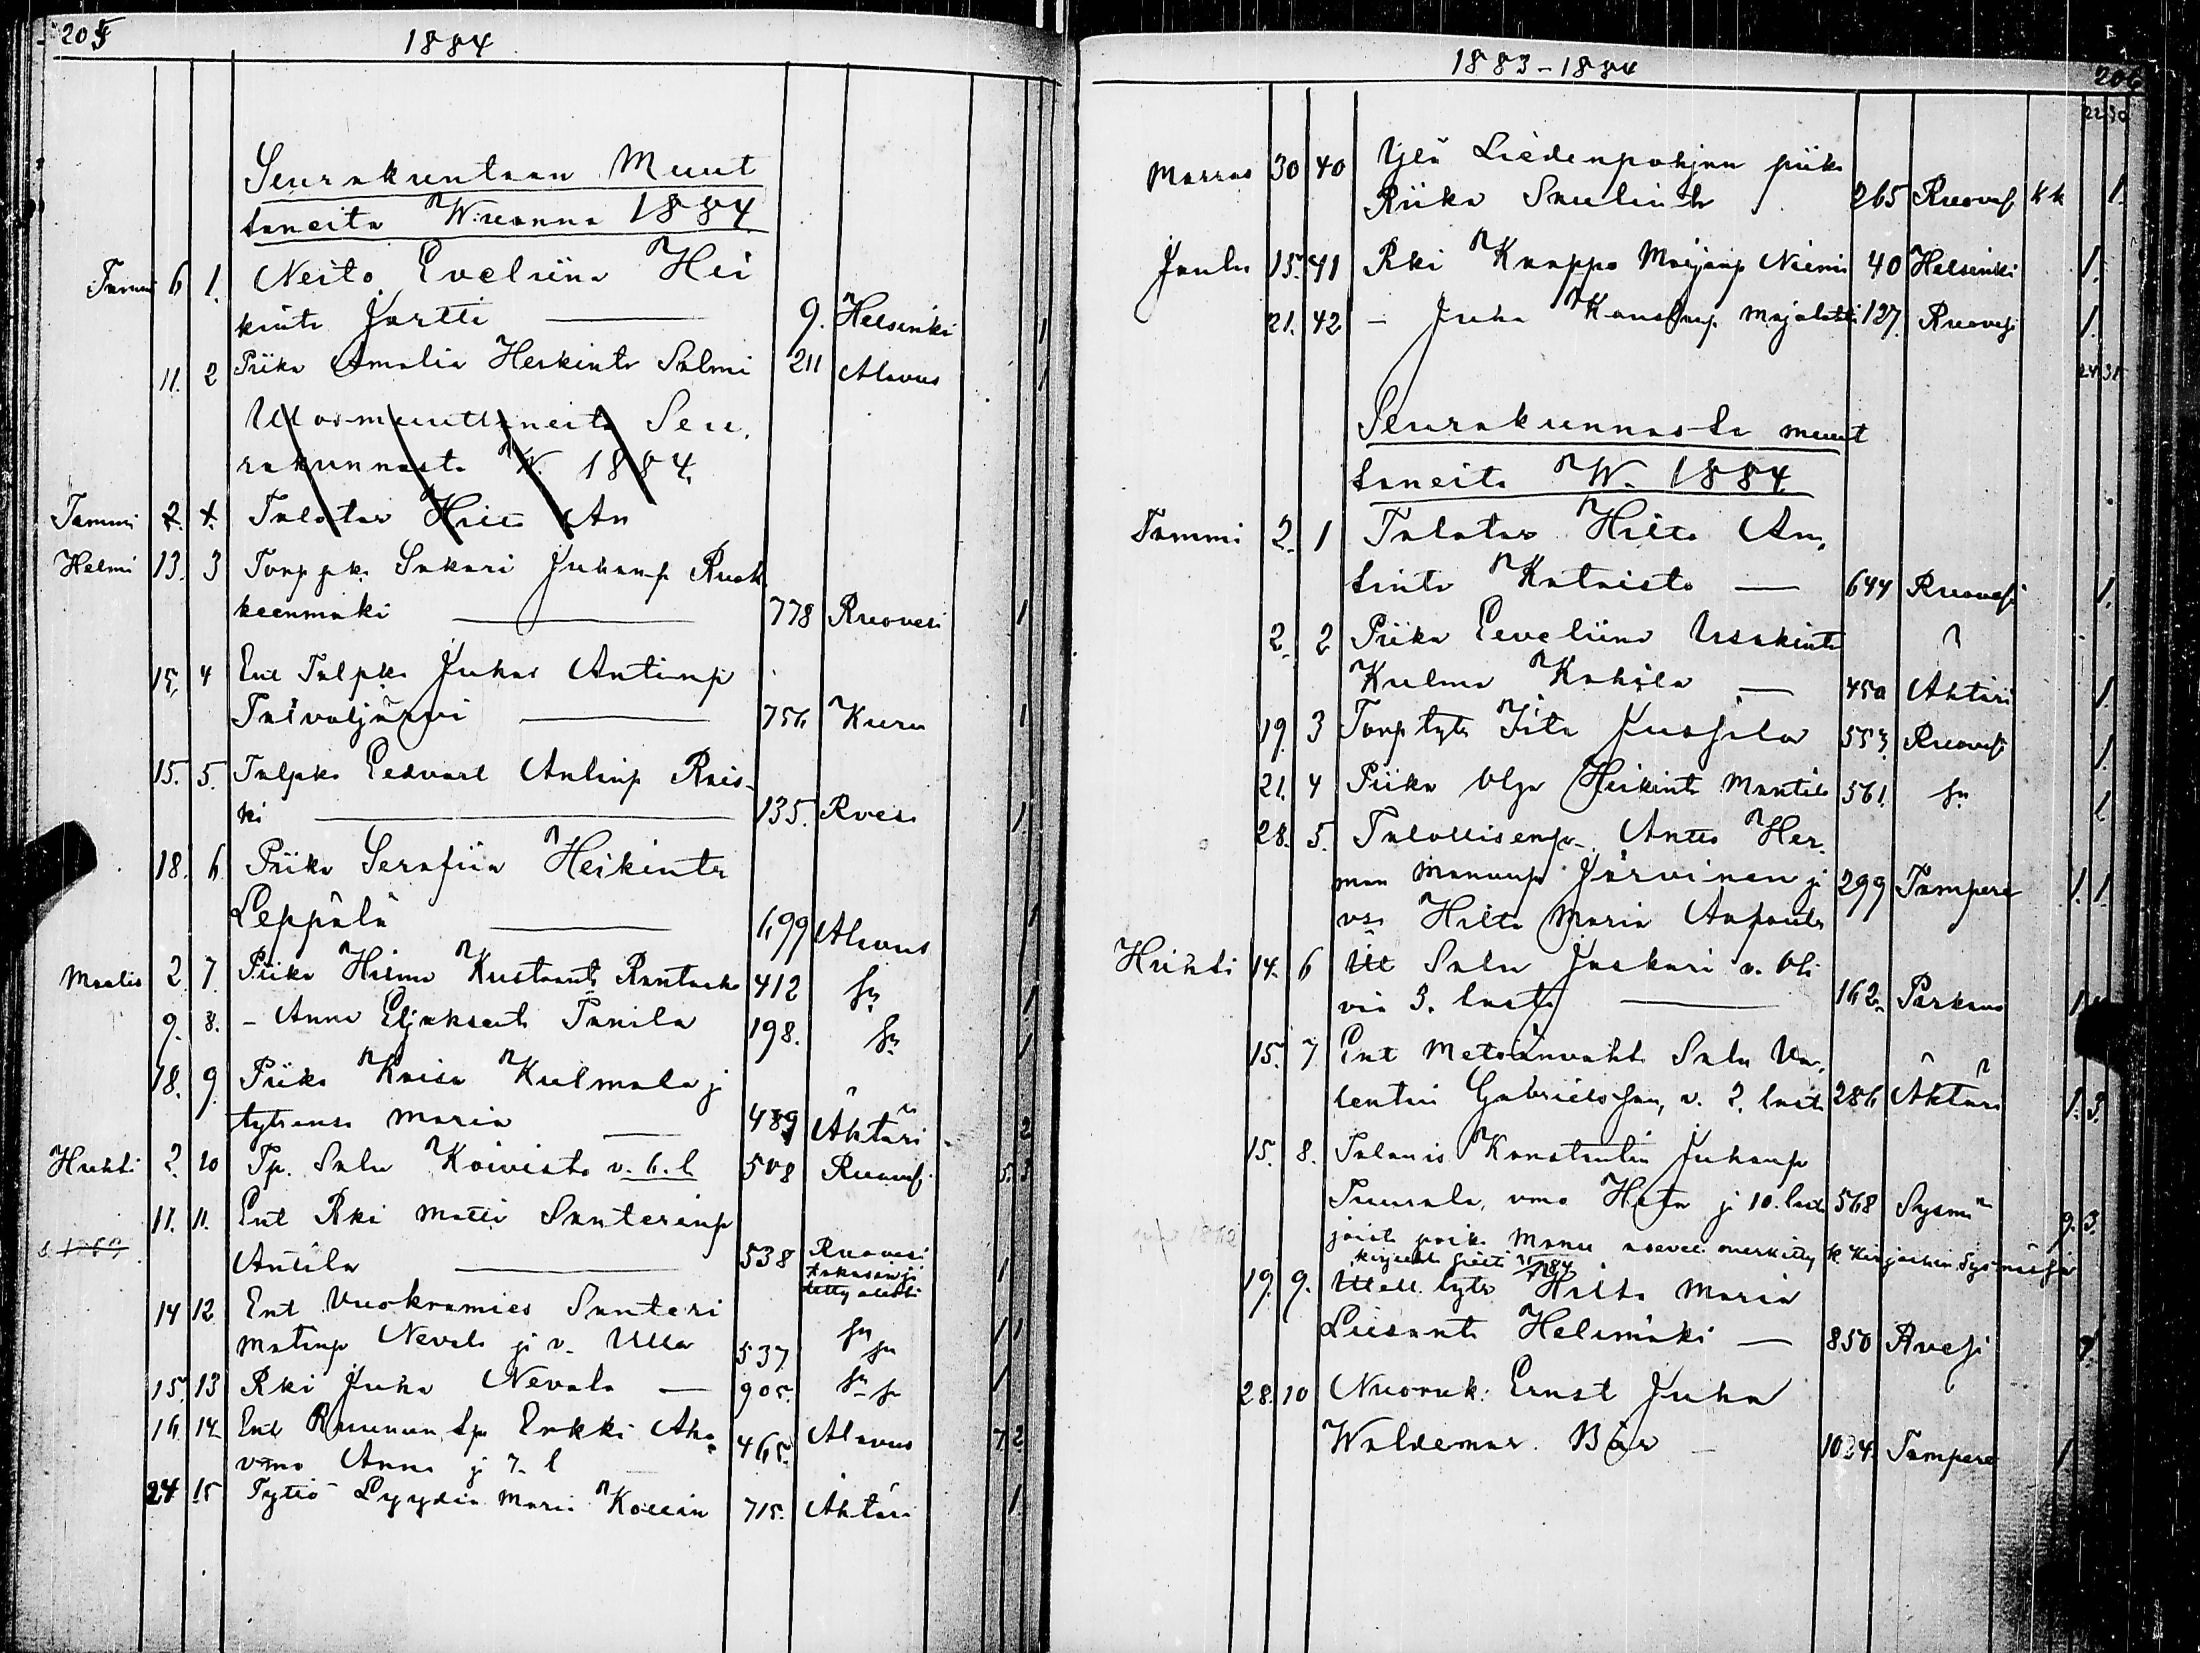 205
1884
Seurakuntaan Muut
taneita W:uonna 1884.
Tammi 6 1. Neito Eveliina Hei
kint: Jortti — 9. Helsinki 1
11. 2 Piika Amalia Heikintr Salmi 211 Alavus 1
Ulosmuuttaneita Seu.
rakunnasta W. 1884.
Tammi 2. 1. Talotar Hilta An
Helmi 13. 3 Torp pk. Sakari Juhanp
keenmäki — 778 Ruovesi 1
15. 4 Ent Talpk. Juhas Antinp
— 756 Kuru 1
15. 5. Talpk. Eedvart Antinp Rais-
ki — 135. Rvesi 1.
18. 6 Piika Serafiia Heikintr
Leppälä — 699 Alavus 1
Maalis 2. 7. Piika Hilma Kustaantr 412 sn 1
9. 8. – Anna Eljaksent: Panila 198. sn 1
18. 9. Piika Kaisa Kulmala j
tytrensä Maria — 489 Ähtäri 2
Huhti 2. 10 Tp. Salu Koivisto v. 6. l 508 Ruovesi 5. 3
11. 11. Ent Rki Matti Santerinp
Antila — 538 Ruovesi 1
takasin
tetty
14 12 Ent Vuokramies Santeri
Matinp Nevala j v. Ulla 537 sn sn 1 1
15. 13 Rki Juha Nevala — 905. sn sn 1
16 14. Ent Ruunun tp Erkki Aho 465. Alavus 7. 2
vmo Anna j 7. l
24 15 Tytto Lyydia Maria Kollin 715. Ähtäri 1.
1883-1884
206
22 30
Marras 30 40 Ylä Liedenpohjan piika
Riika Saulintr 265 Ruovesi kk 1.
Joulu 15. 41 Rki Kaappo Maijanp Niemi 40 Helsinki 1.
21. 42 – Juha 127. Ruovesi 1.
24 31
Seurakunnasta muut
taneita W. 1884
Tammi 2. 1 Talotar Hilta An,
tintr Kataisto — 644 Ruovesi 1.
2. 2 Piika Eeveliina Iisakintr
Kulma Kahila — 450 Ähtäri 1.
19. 3 Torp tytr Iita Jussila 553. Ruovesi 1.
21. 4 Piika Olga Heikintr Mantila 561. sn 1
28. 5. Talollisenp. Antto Her-
man Manunp Järvinen j 299 Tampere 1. 1.
vso Hilta Maria
Huhti 14. 6 Itl Salu Jaskari v. Oli
via 3. lasta — 162. Parkano 1
15. 7 Ent Metsänvahti Salu Va,
lentin Gabrielsson, v. 2. lasta 286 Ähtäri 1. 3.
15. 8. Talonis Konstantin Juhanp
Tuurala, vmo Heta j 10. lasta 568 Sysmä 9. 3.
joist poika Manu
19. 9. Itell. tytr Hilta Maria
Liisantr Helimäki — 850 Rvesi 1.
28. 10 Nuoruk: Ernst Juha
Waldemar. Bär – 1034. Tampere 1